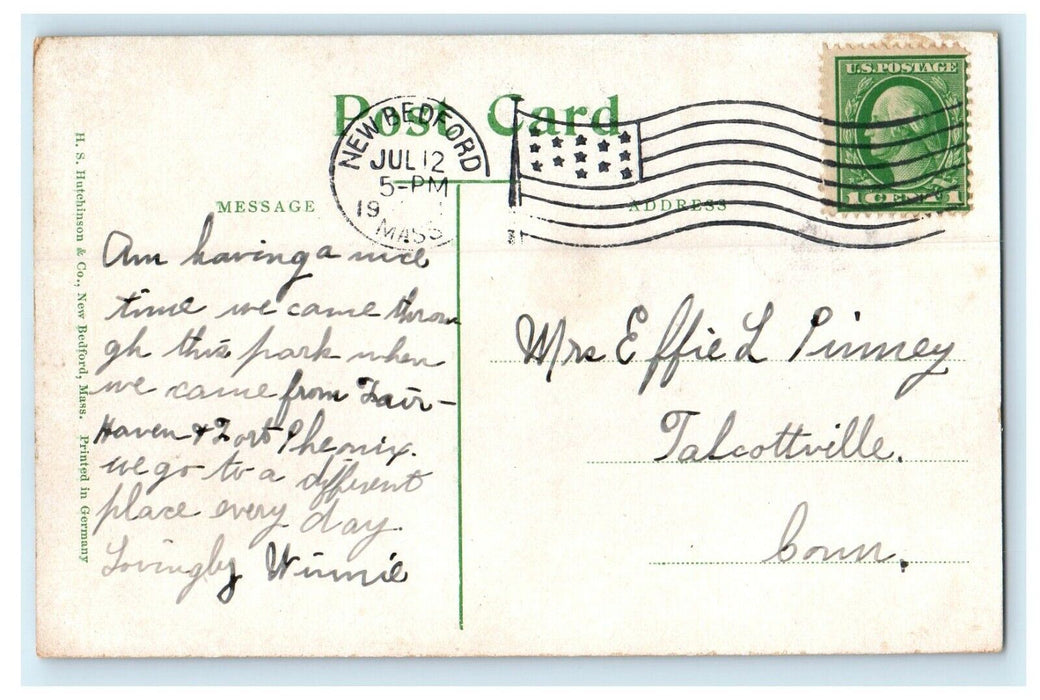 Post Card
U.S. POSTAGE
1 CENT 1
NEW BEDFORD
JUL 12
5-PM
19
MASS
MESSAGE
ADDRESS
Am having a nice
time we came throu
gh this park when
we came from Fair-
Haven & Fort Pheonix.
we go to a different
place every day.
Lovingly Winnie
Mrs Effie L Pinney
Talcottville.
Conn.
H. S. Hutchinson & Co., New Bedford, Mass. Printed in Germany